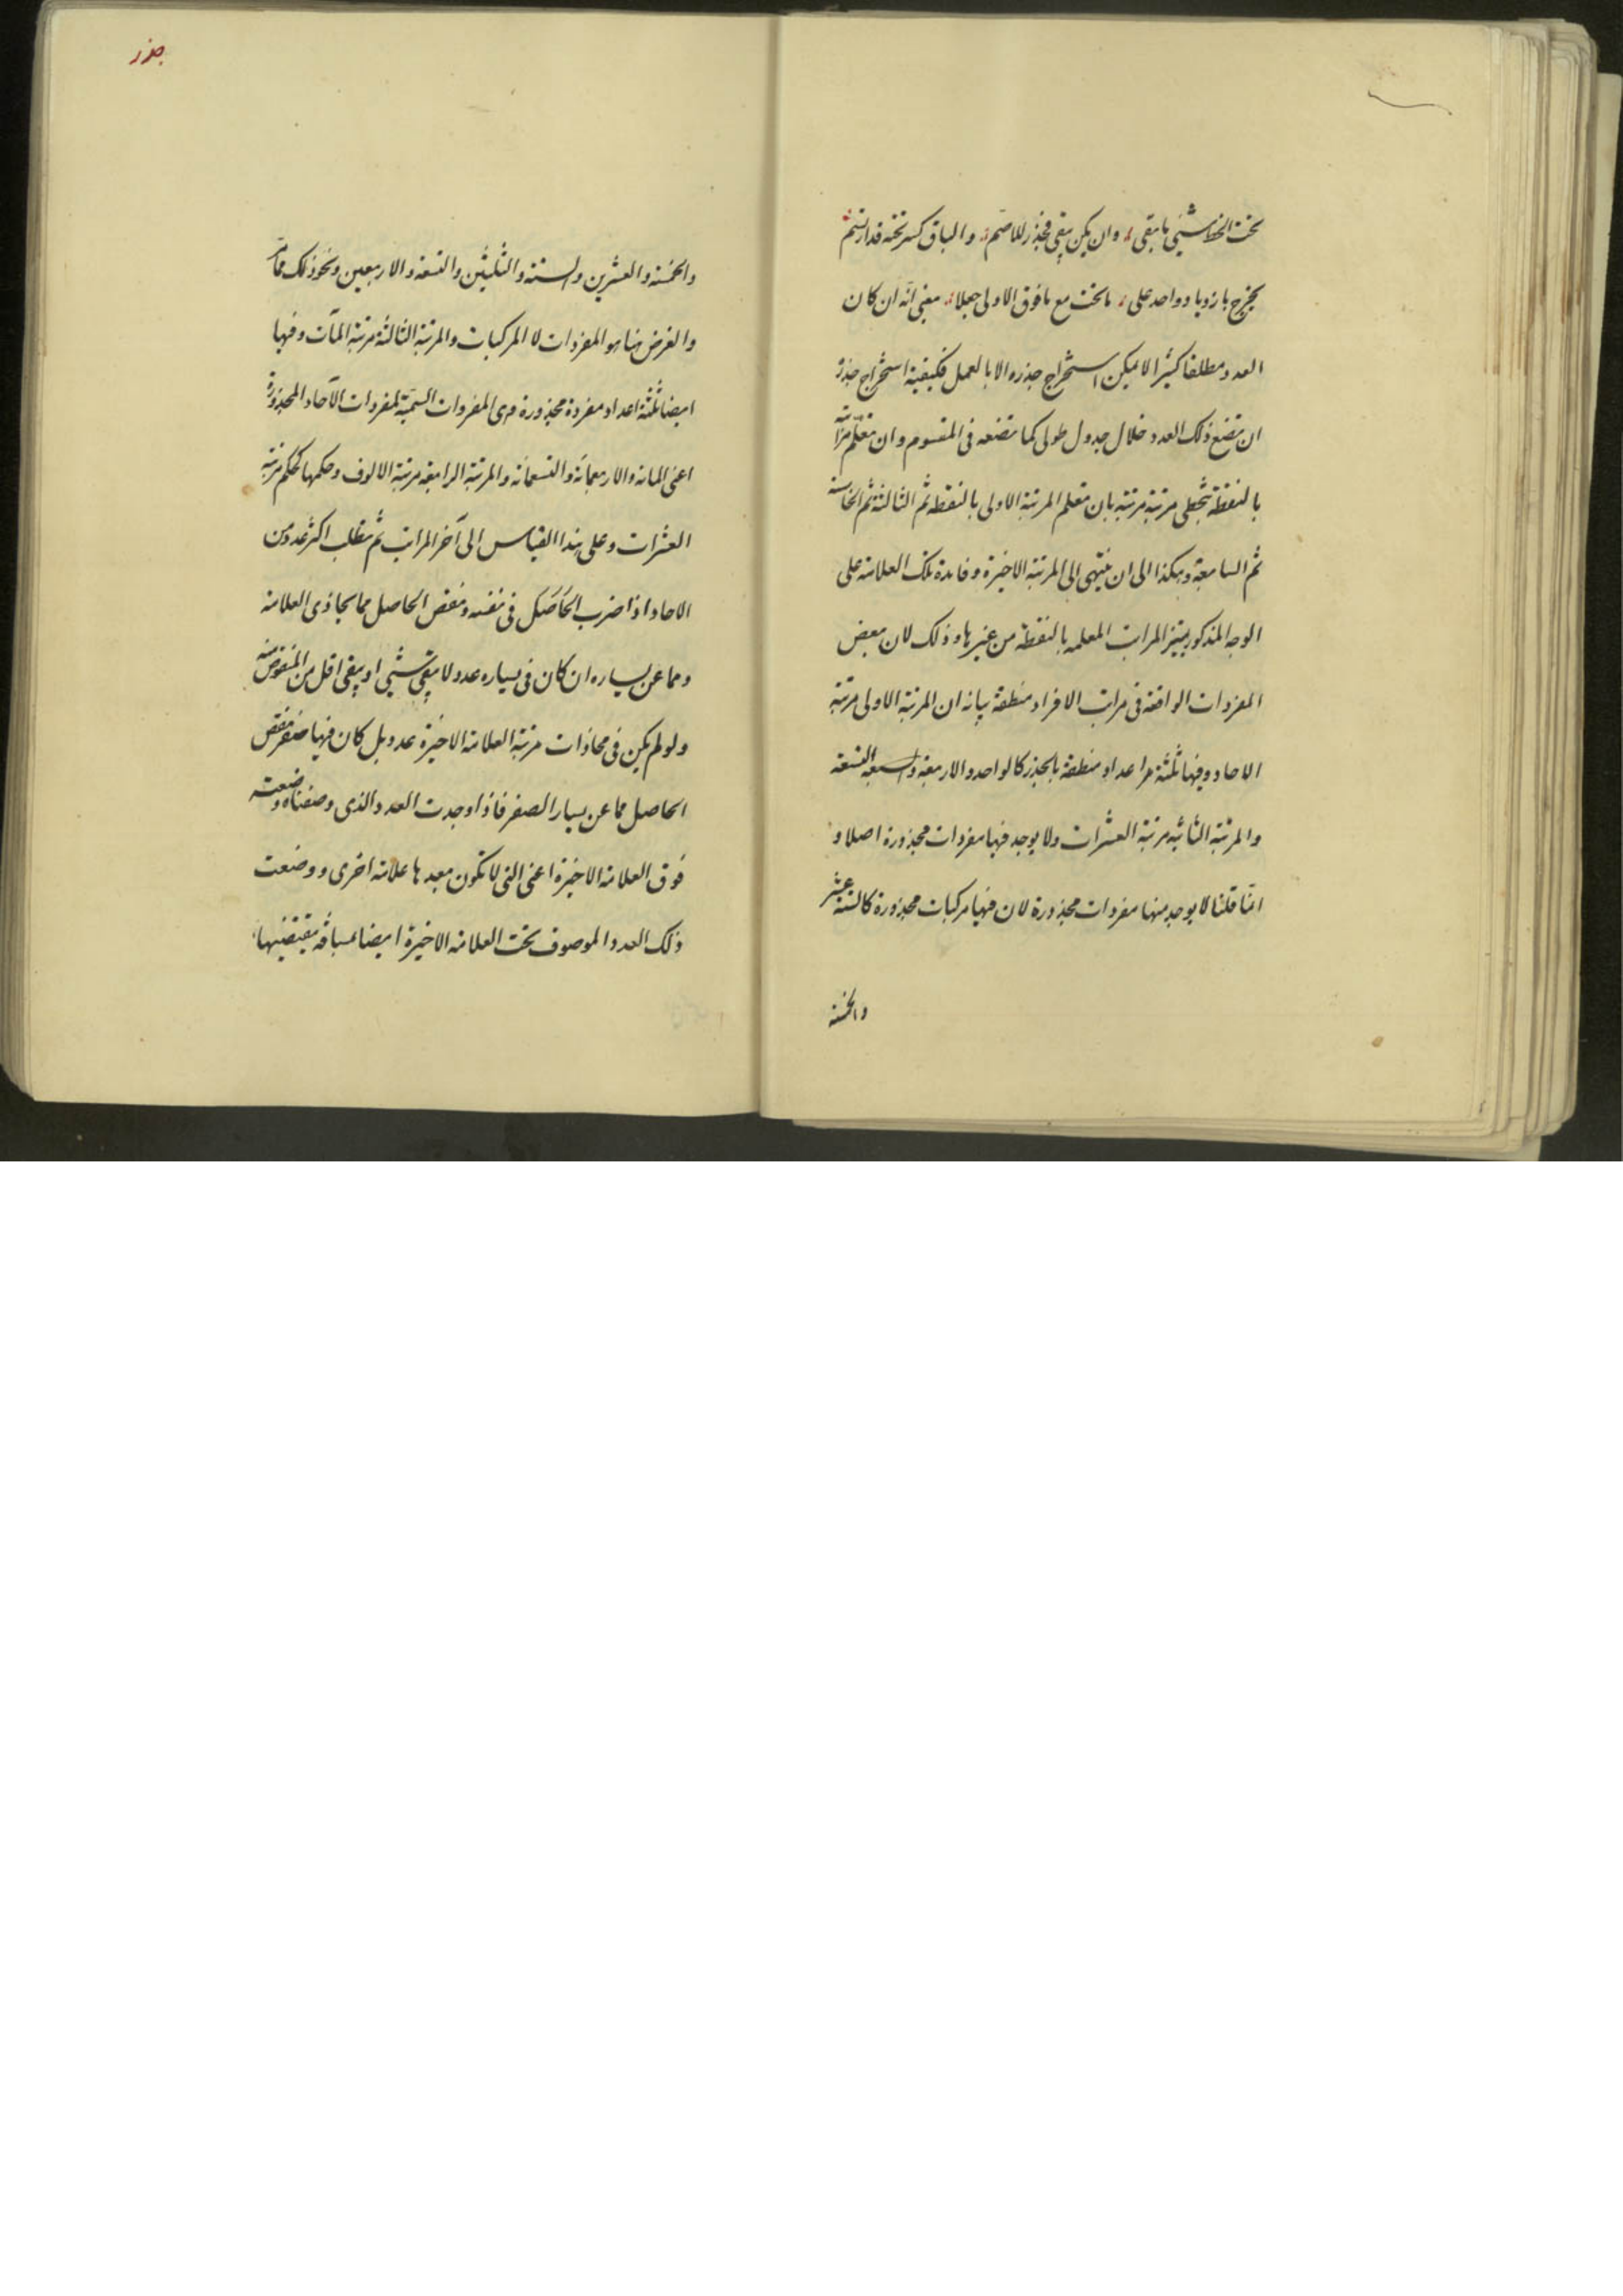 تحت الخط شيئي ما بقى وان يكن يبقى فجذر للاصم والباق كسر تحته قد ارتسم
يخرج بازدياد واحد على ما تحت مع ما فوق الاولى جعلا يعنى انه ان كان
العدد مطلقا كثيرا لا يمكن استخراج جذره الا بالعمل فكيفية استخراج جذره
ان تضع ذلك العدد خلال جدول طولى كما تضعه فى المقسوم وان تعلم مراتبه
بالنقطة بتخطى مرتبة مرتبة بان تعلم المرتبة الاولى بالنقطة ثم الثالثة ثم الخامسة
ثم السابعة وهكذا الى ان ينتهى الى المرتبة الاخيرة وفايدة تلك العلامة على
الوجه المذكور يتميز المراتب المعلمه بالنقطة من غيرها وذلك لان بعض
المفردات الواقعة فى مراتب الافراد منطقة بيانه ان المرتبة الاولى مرتبة
الاحاد وفيها ثلثة اعداد منطقة بالجذر كالواحد والاربعة والتسعة
والمرتبة الثانية مرتبة العشرات ولا يوجد فيها مفردات مجذورة اصلا و
انما قلنا لا يوجد منها مفردات مجذورة لان فيها مركبات مجذورة كالستة عشر
والخمسة
جذر
والخمسة والعشرين والستة والثلثين والتسعة والاربعين ونحو ذلك مما مر
والغرض هنا هو المفردات لا المركبات والمرتبة الثالثة مرتبة المآت وفيها
ايضا ثلثة اعداد مفردة مجذورة وهى المفردات السمية لمفردات الآحاد المجذورة
اعنى المائة والاربعمائة والتسعمائة والمرتبة الرابعة مرتبة الالوف وحكمها كحكم مرتبة
العشرات وعلى هذا القياس الى آخر المراتب ثم تطلب اكثر عدد من
الاحاد اذا ضرب الحاصل فى نفسه ونقص الحاصل مما يحاذى العلامة
ومما عن يساره ان كان فى يساره عدد لا يبقى شيئي او يبقى اقل من المنقوص منه
ولو لم يكن فى محاذات مرتبة العلامة الاخيرة عدد بل كان فيها صفر نقص
الحاصل مما عن يسار الصفر فاذا وجدت العدد الذى وصفناه وضعته
فوق العلامة الاخيرة اعنى التى لا تكون بعدها علامة اخرى ووضعت
ذلك العدد الموصوف تحت العلامة الاخيرة ايضا بمسافة يقتضيها